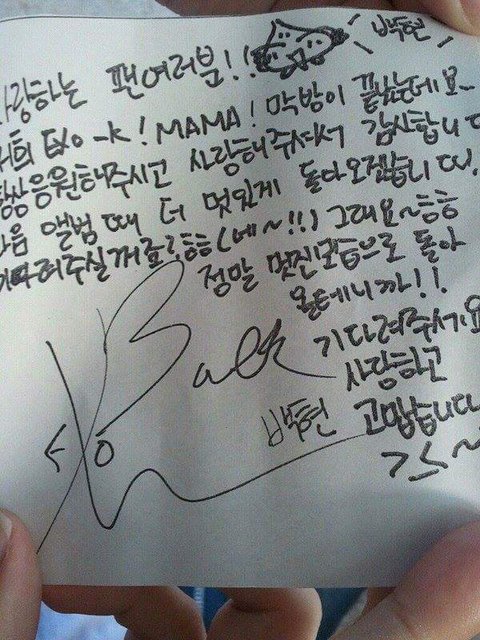 사랑하는 팬여러분!! 백현
저희 EXO-K! MAMA! 막방이 끝났는데요~
항상응원해주시고 사랑해주셔서 감사합니다
다음 앨범 때 더 멋있게 돌아오겠습니다.
기다려주실꺼죠? 흠흠 (네~!!) 그래요~흠흠
정말 멋진모습으로 돌아
올테니까!!
기다려주세요
사랑하고
백현 고맙습니다
Baek